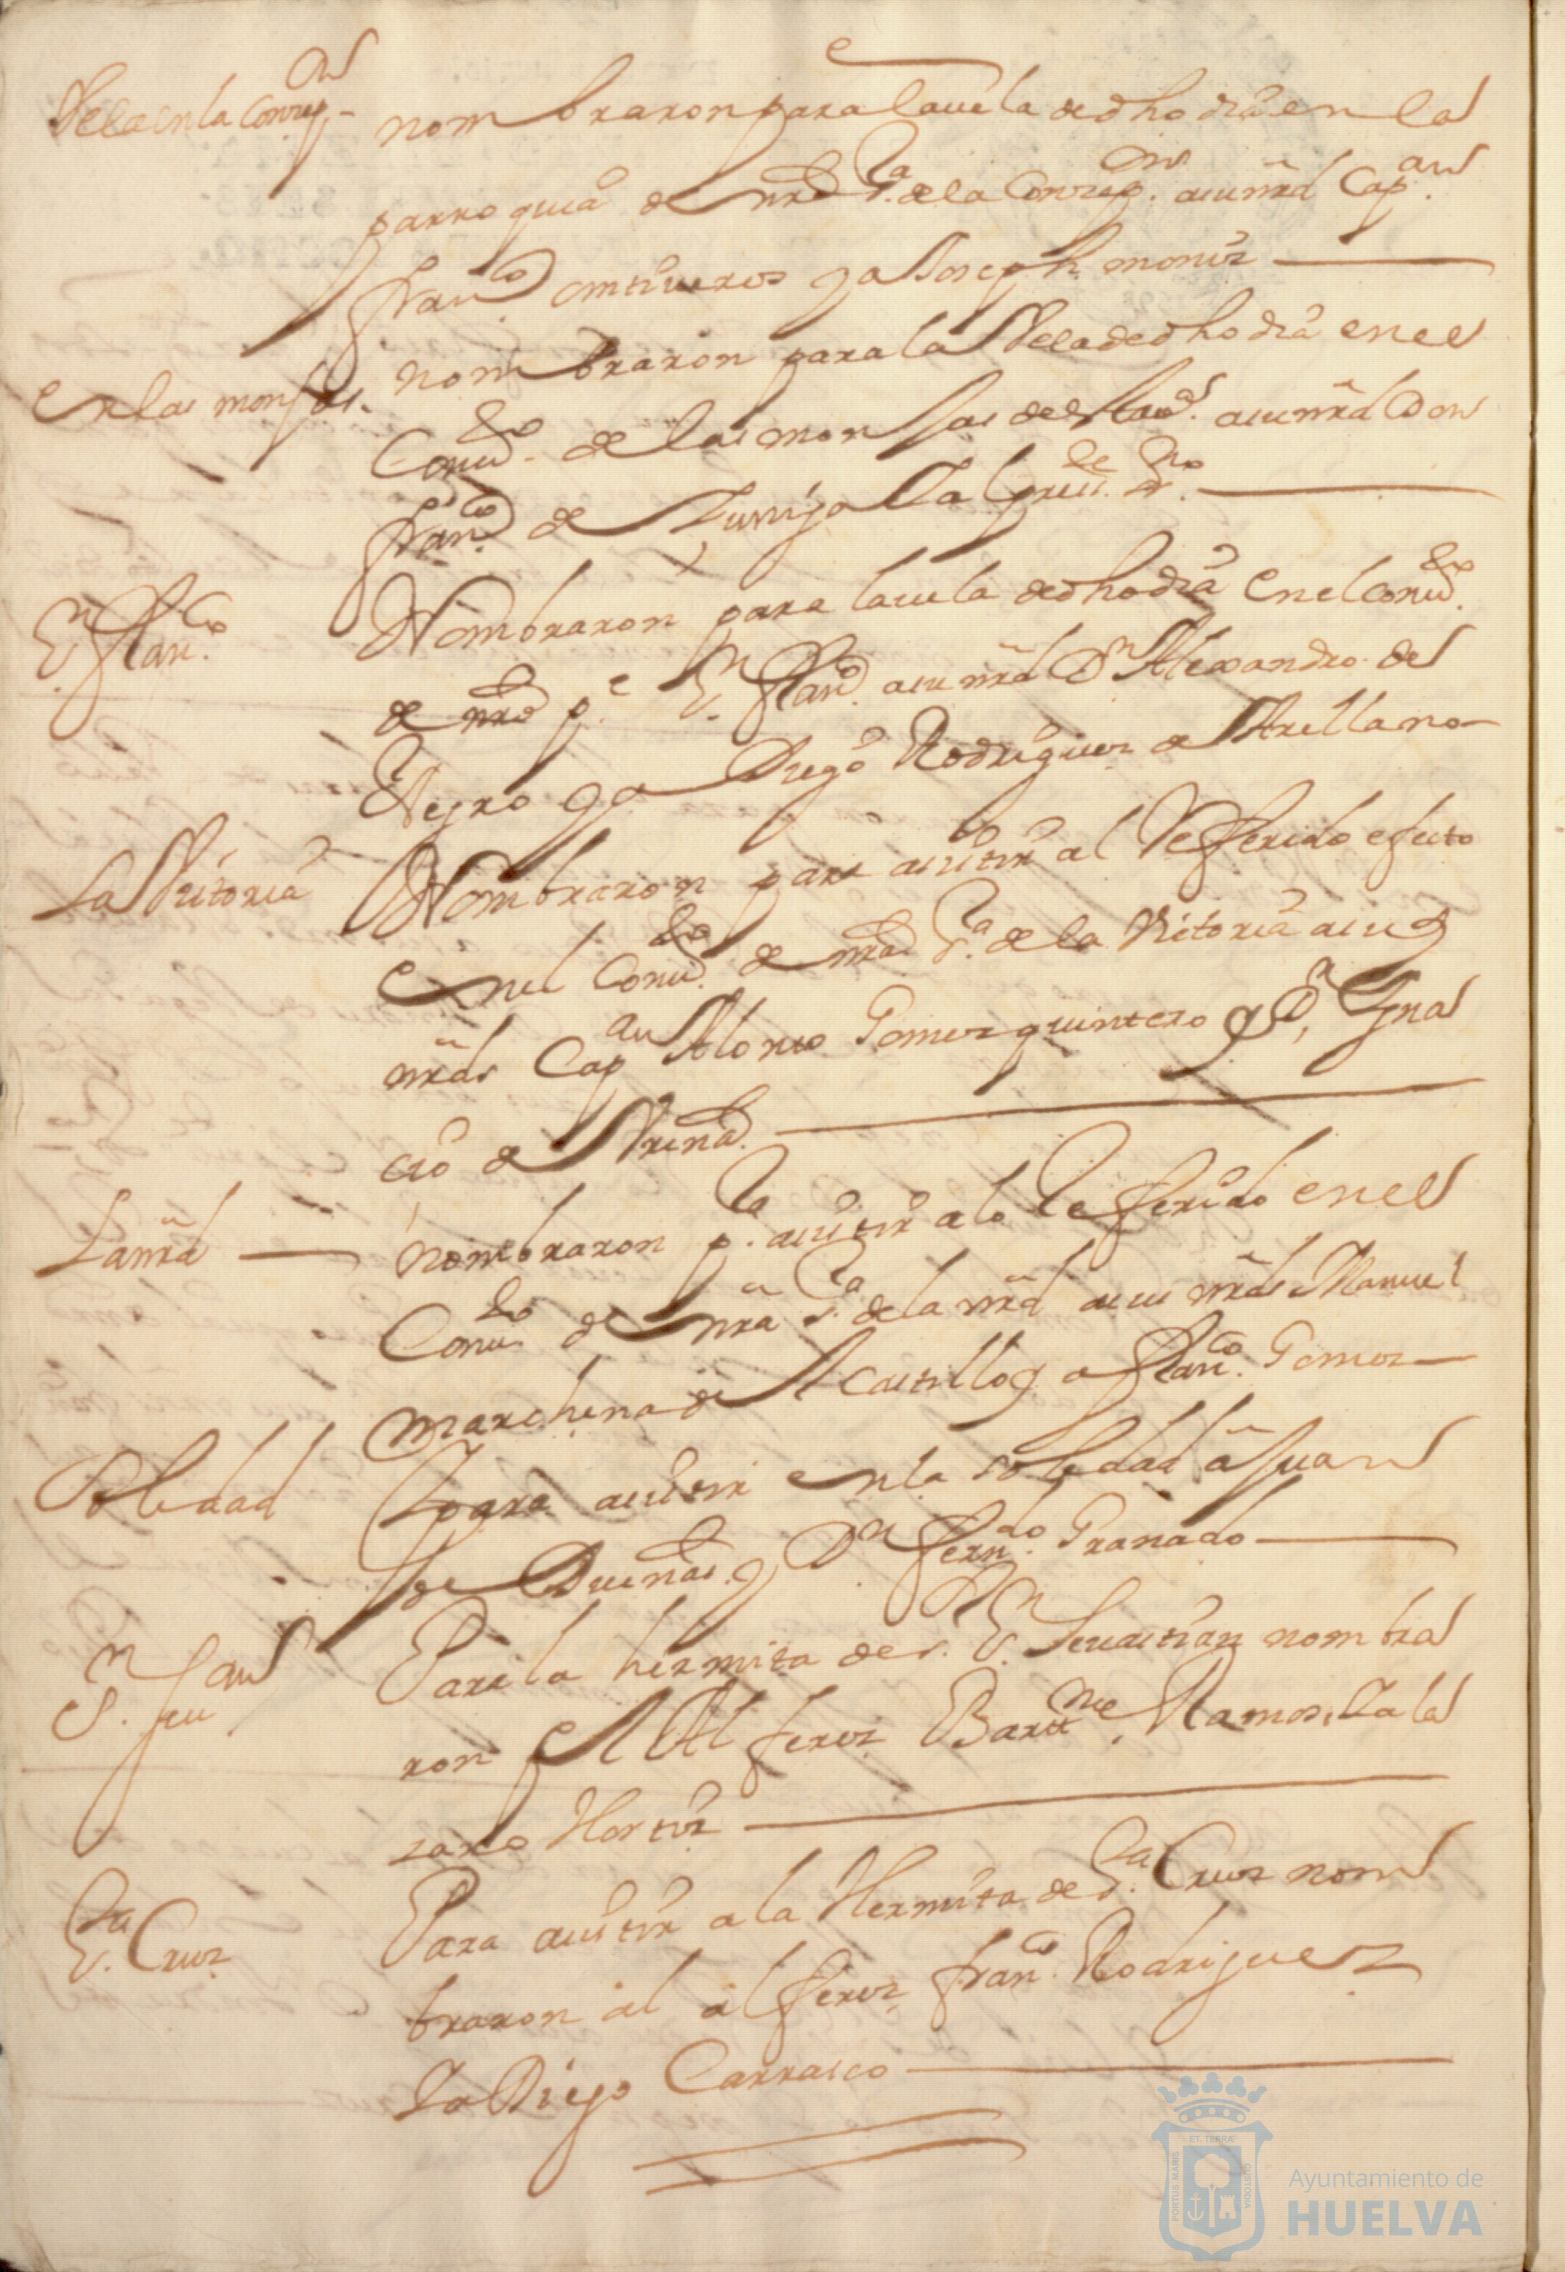 Vela en la Conzepon
nombraron para la uela de dho dia en la
parroquia de nrã Sa. de la Conzepon. a su mrd Capan.
Franco ontiueros y a Joseph moniz
En las monjas.
nombraron para la Vela de dho dia en el
Conuto. de las monjas de esta va. a su mrd Don
Franco. de Zuniga La
En S. Franco.
Nombraron para la uela de dho dia en el Conuto.
de nro pe. Sn. Franco a su mrd Dn Alexandro de
Negro y a Diego Rodriguez de Arellano
La Vitoria
Nombraron para asistir al Refferido efecto
en el Conuto. de nrã Sa. de la Vitoria a sus
mrds Capan Alonso Gomez quintero y Dn. Ygna
cio de
La mrd
nombraron pa. asistir a lo Refferido en el
Conuto de nrã Sa. de la mrd a sus mrds Manuel
marchena de Castillo y a Franco. Gomez
Soledad
Y para asistir en la soledad â Juan
de Dueñas y Dn Ferndo. Granado
Sn. Seuan
Para la hermita de s. Sn. Seuastian nombra
ron el Alferez Bartme. Ramos, Y a la
zaro Hortiz
Sta. Cruz
Para asistir a la Hermita de Sta. Cruz nom
braron al alferez Franco. Rodriguez
Y a Diego Carrasco
PORTUS MARIS
ET TERRÆ
CUSTODIA
Ayuntamiento de
HUELVA